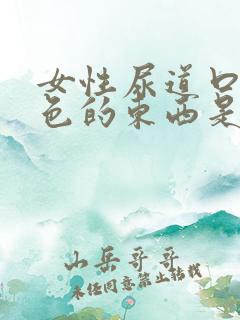 女性尿道口
色的东西是
山岳哥哥
未经同意禁止转载